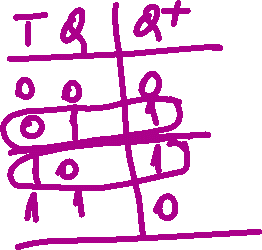 T Q Q+
0 0 0
0 1 1
1 0 1
1 1 0